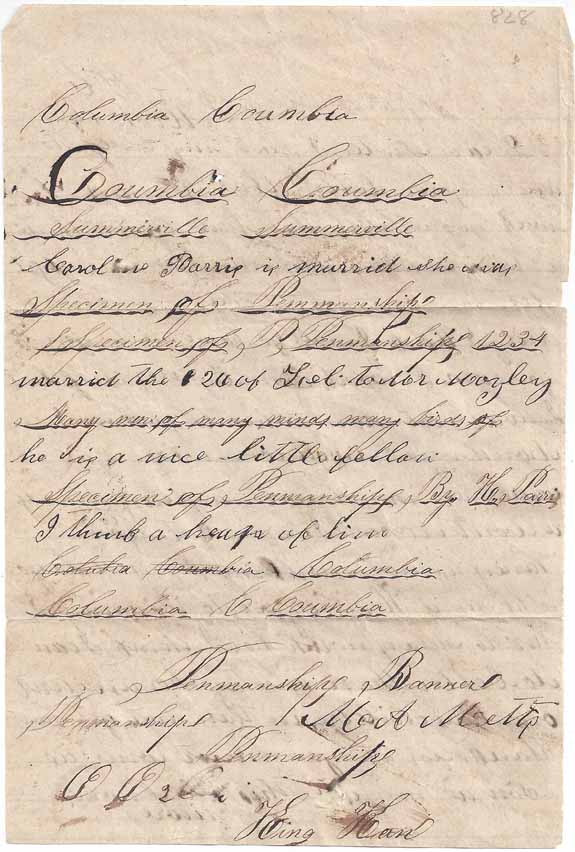 828
Columbia Coumbia
Coumbia Coumbia
Summerville Summerville
Caroline Parris is murrid she was
Specimen of Penmanship
Specimen of P Penmanship 1234
murrid the 20 of Feb to Mr Mozley
Many men of many minds many birds of
he is a nice little fellow
Specimen of Penmanship By H. Parris
I think a heap of him
Coumbia Columbia
Columbia C Coumbia
Penmanship Banner
Penmanship M A M
Penmanship
O O 2 C i
King Kan